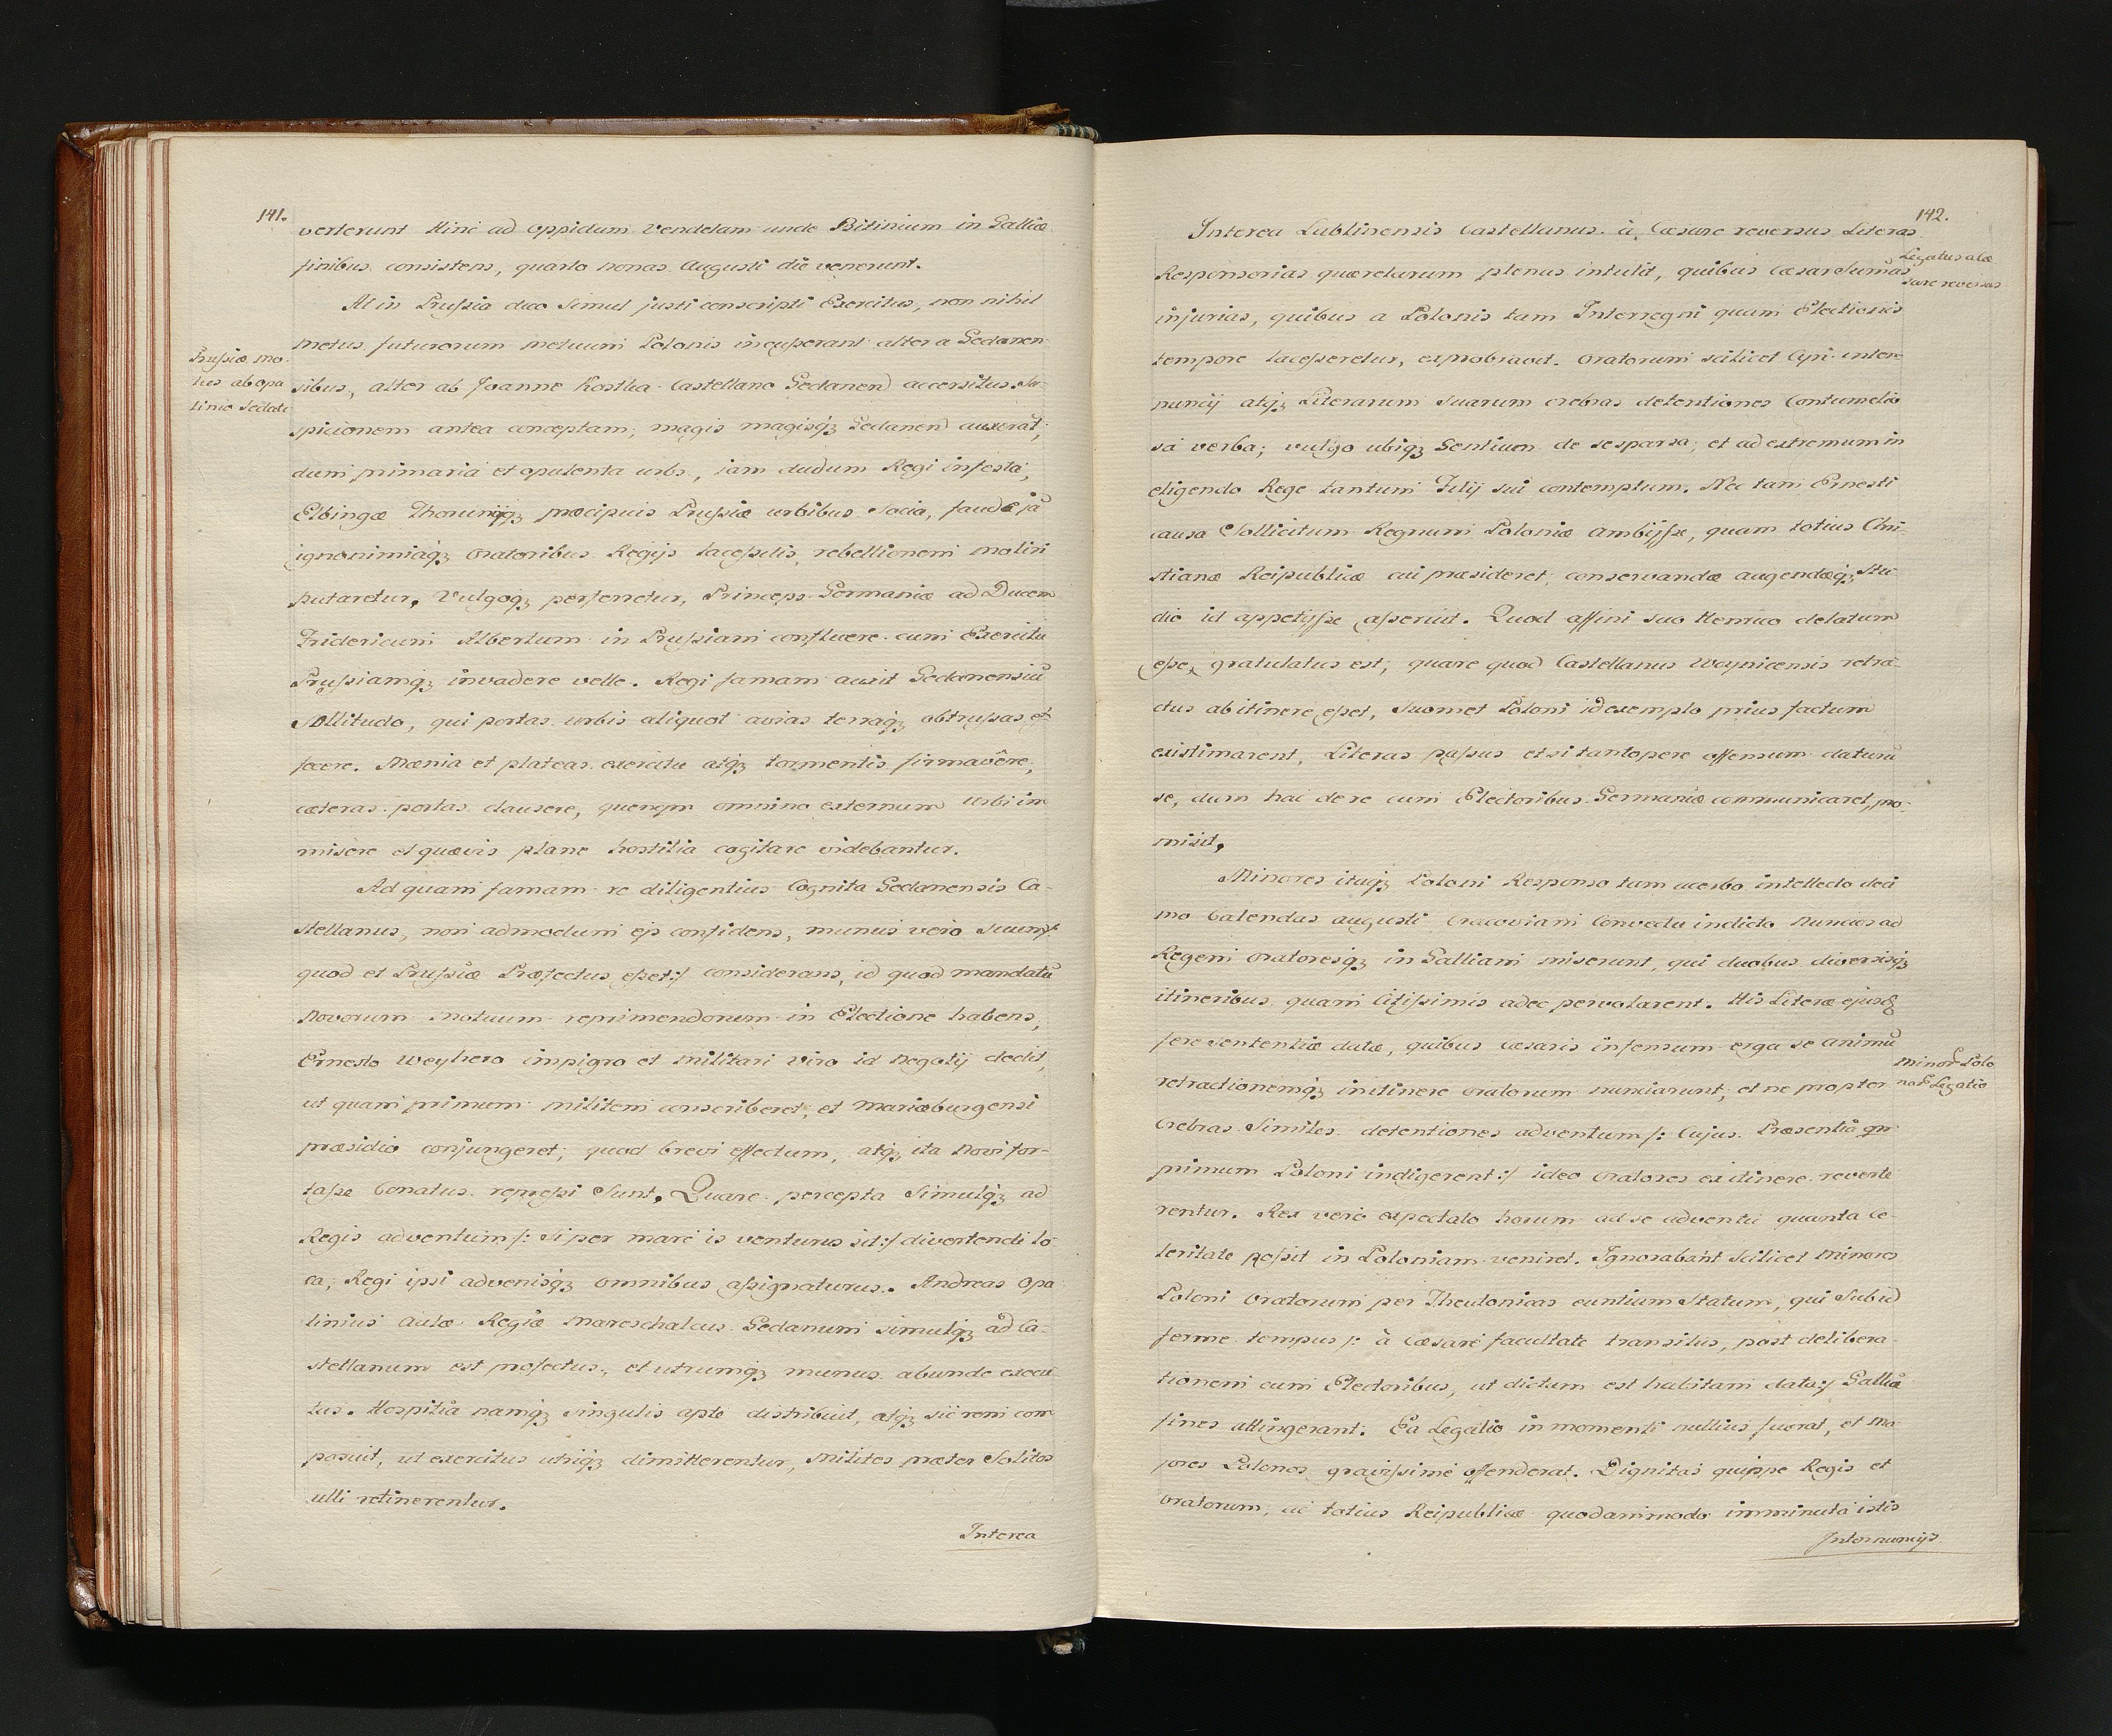 141.
verterunt Hinc ad oppidum Vendelam unde Bitinium in Galliæ
finibus consistens, quarto nonas Augusti die venerunt.
At in Prussia duo simul justi conscripti Exercitus, non nihil
metus futurorum motuum Polonis incusserant alter a Gedanen
Prussiæ mo-
tus ab Opa
linio sedati
sibus, alter ab Joanne Kostka Castellano Gedanen accersitus. Su-
spicionem antea conceptam, magis magisq; Gedanen auxerat;
dum primaria et opulenta urbs, iam dudum Regi infesta,
Elbingæ Thoruniiq; præcipuis Prussiæ urbibus socia, fraude jã
ignonimiaq; Oratoribus Regijs lacessitis, rebellionem moliri
putaretur. Vulgoq; perferretur, Princeps Germaniæ ad Ducem
Fridericum Albertum in Prussiam confluere cum Exercitu
Prussiamq; invadere velle. Regi famam auxit Gedanensiũ
sollitudo, qui portas urbis aliquot avias terraq; obtrusas et
fecere. Mænia et plateas exercitu atq; tormentis firmavêre,
cæteras portas clausere, quenqm omnino externum urbi im
misere et quævis plane hostilia cogitare videbantur.
Ad quam famam re diligentius Cognita Gedanensis Ca-
stellanus, non admodum ejs confidens, munus vero suum /:
quod et Prussiæ Præfectus esset :/ considerans, id quod mandatũ
Novorum motuum reprimendorum in Electione habens,
Ernesto Weyhero impigro et militari viro id negotij dedit,
ut quam primum militem conscriberet, et Mariæburgensi
præsidio conjungeret; quod brevi effectum, atq; ita novi for-
tasse Conatus repressi sunt. Quare percepta simulq; ad
Regis adventum /: si per mare is venturus sit :/ divertendi lo
ca, Regi ipsi advenisq; omnibus assignaturus. Andreas Opa
linius Aulæ Regiæ Mareschalcus Gedanum simulq; ad Ca-
stellanum est profectus, et utrumq; munus abunde execu
tus. Hospitia namq; singulis apte distribuit, atq; sic rem com
posuit, ut exercitus utriq; dimitterentur, milites præter solitos
ulli retinerentur.
Interea
142.
Interea Lublinensis Castellanus à Cæsare reversus Literas
Legatus a Cæ
sare reversus
Responsorias quærelarum plenus intulit, quibus Cæsar sumãs
injurias, quibus a Polonis tam Interregni quam Electionis
tempore lacesseretur, exprobravit. Oratorum scilicet Cyri inter-
nuncij atq; Literarum suarum crebras detentiones Contumelio
sa verba; vulgo ubiq; Gentium de se sparsa, et ad extremum in
eligendo Rege tantum Filij sui contemptum. Nec tam Ernesti
causa Sollicitum Regnum Poloniæ Ambijsse, quam totius Chri
stianæ Reipublicæ cui præsideret, conservandæ augendæq; stu
dio id appetijsse asseruit. Quod affini suo Henrico delatum
esse, gratulatus est; quare quod Castellanus Woynicensis retra-
ctus ab itinere esset, suomet Poloni id exemplo prius factum
existimarent, Literas passus etsi tantopere offensum daturũ
se, dum hac de re cum Electoribus Germaniæ communicaret, pro-
misit.
Minores itaq; Poloni Responso tum acerbo intellecto deci
mo Calendas Augusti Cracoviam Conventu indicto Nuncios ad
Regem Oratoresq; in Galliam miserunt, qui duobus diversisq;
itineribus quam citissimis adeo pervolarent. His Literæ ejusd
fere sententiæ datæ, quibus Cæsaris infensum erga se animũ
Minor Polo
nor Legatio
retractionemq; in itinere oratorum nunciarunt, et ne propter
Crebras Similes detentiones adventum /: Cujus Præsentiã qm
primum Poloni indigerent :/ ideo Oratores ex itinere reverte
rentur. Rex vero expectato horum ad se adventu quanta ce-
leritate possit in Poloniam veniret. Ignorabant scilicet Minores
Poloni Oratorum per Theutonicas euntium Statum, qui sub id
ferme tempus /: à Cæsare facultate transitus, post delibera
tionem cum Electoribus, ut dictum est habitam data :/ Galliæ
fines attingerant. Ea Legatio in momenti nullius fuerat, et Ma
jores Polonos gravissime offenderat. Dignitas quippe Regis et
Oratorum, ac totius Reipublicæ quodammodo imminuta istis
Internuncijs